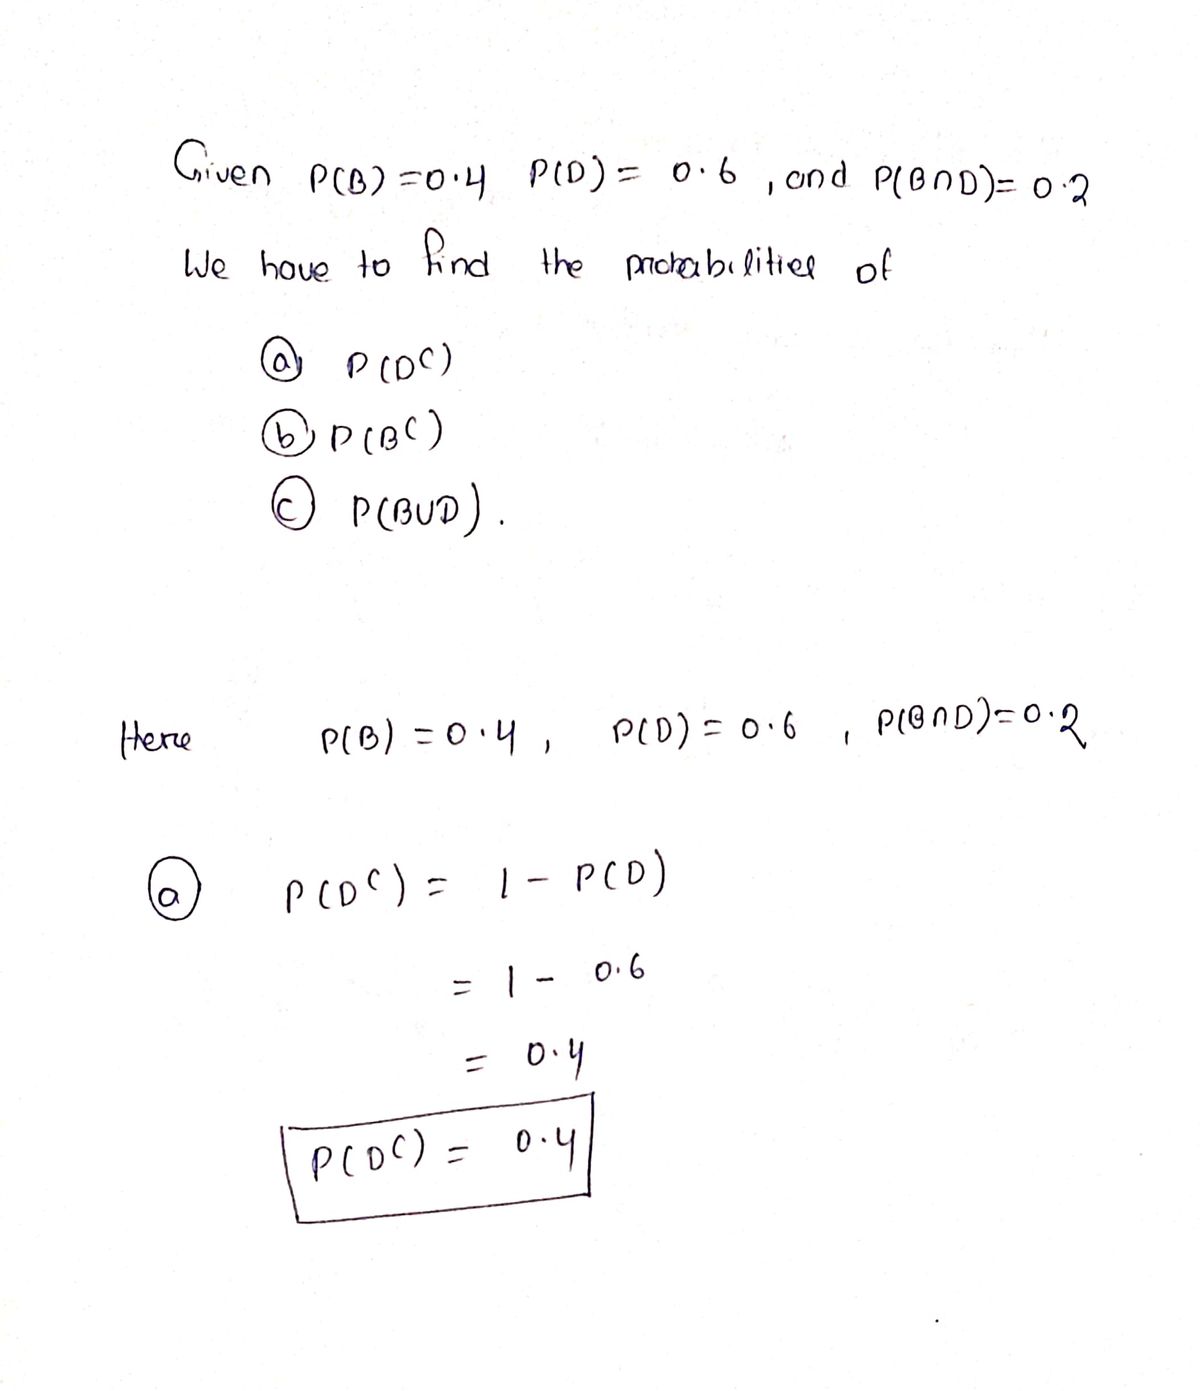 Given P(B)=0.4 P(D)= 0.6 , and P(B∩D)= 0.2
We have to find the probabilities of
ⓐ P(Dᶜ)
ⓑ P(Bᶜ)
ⓒ P(B∪D).
Here P(B) = 0.4 , P(D) = 0.6 , P(B∩D)=0.2
ⓐ P(Dᶜ) = 1 - P(D)
= 1 - 0.6
= 0.4
P(Dᶜ) = 0.4